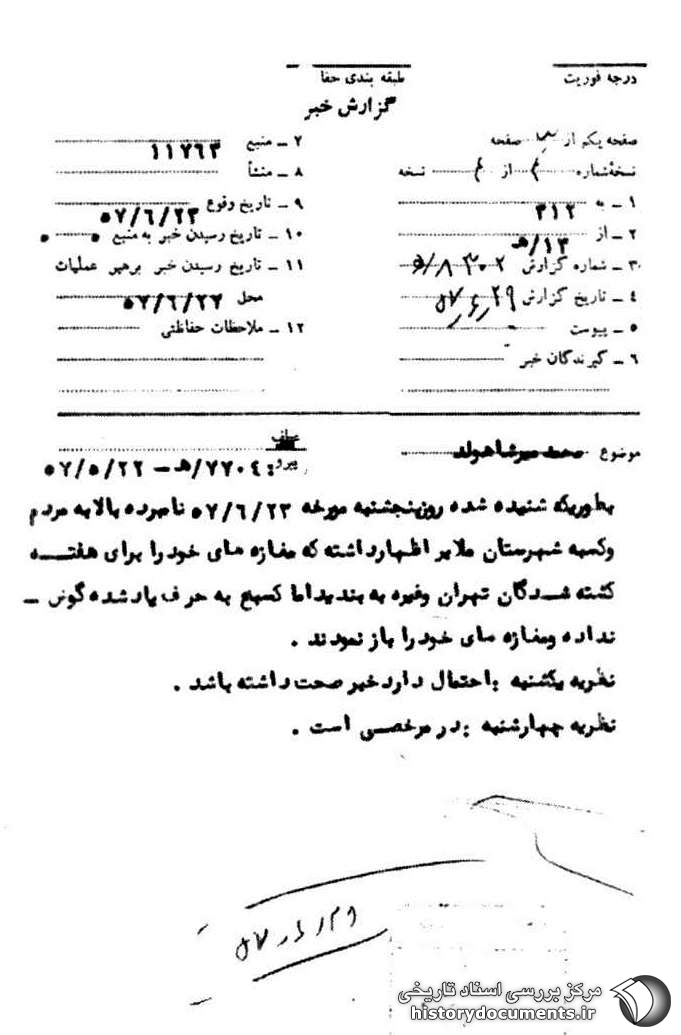 درجه فوریت
طبقه بندی حفا
گزارش خبر
صفحه یکم از صفحه
نسخهٔ شماره ۴ از ۴ نسخه
۱ ـ به ۳۱۲
۲ ـ از ۱۳/ﻫ
۳ ـ شماره گزارش
۴ ـ تاریخ گزارش ۵۷٫۶٫۲۹
۵ ـ پیوست
۶ ـ گیرندگان خبر
۷ ـ منبع ۱۱۷۶۳
۸ ـ منشأ
۹ ـ تاریخ وقوع ۵۷/۶/۲۳
۱۰ ـ تاریخ رسیدن خبر به منبع
۱۱ ـ تاریخ رسیدن خبر برهبر عملیات
محل ۵۷/۶/۲۷
۱۲ ـ ملاحظات حفاظتی
موضوع محمد میرشاهولد
عطف
پیرو: ۷۷۰۴/ﻫ - ۵۷/۵/۲۲
بطوریکه شنیده شده روزپنجشنبه مورخه ۵۷/۶/۲۳ نامبرده بالا به مردم
وکسبه شهرستان ملایر اظهارداشته که مغازه های خود را برای هفتـــه
کشته شــدگان تهران وغیره به بندیداما کسی به حرف یادشده گوش ـ
نداده ومغازه های خود را باز نمودند .
نظریه یکشنبه : احتمال دارد خبر صحت داشته باشد .
نظریه چهارشنبه : در مرخصی است .
مرکز بررسی اسناد تاریخی
historydocuments.ir